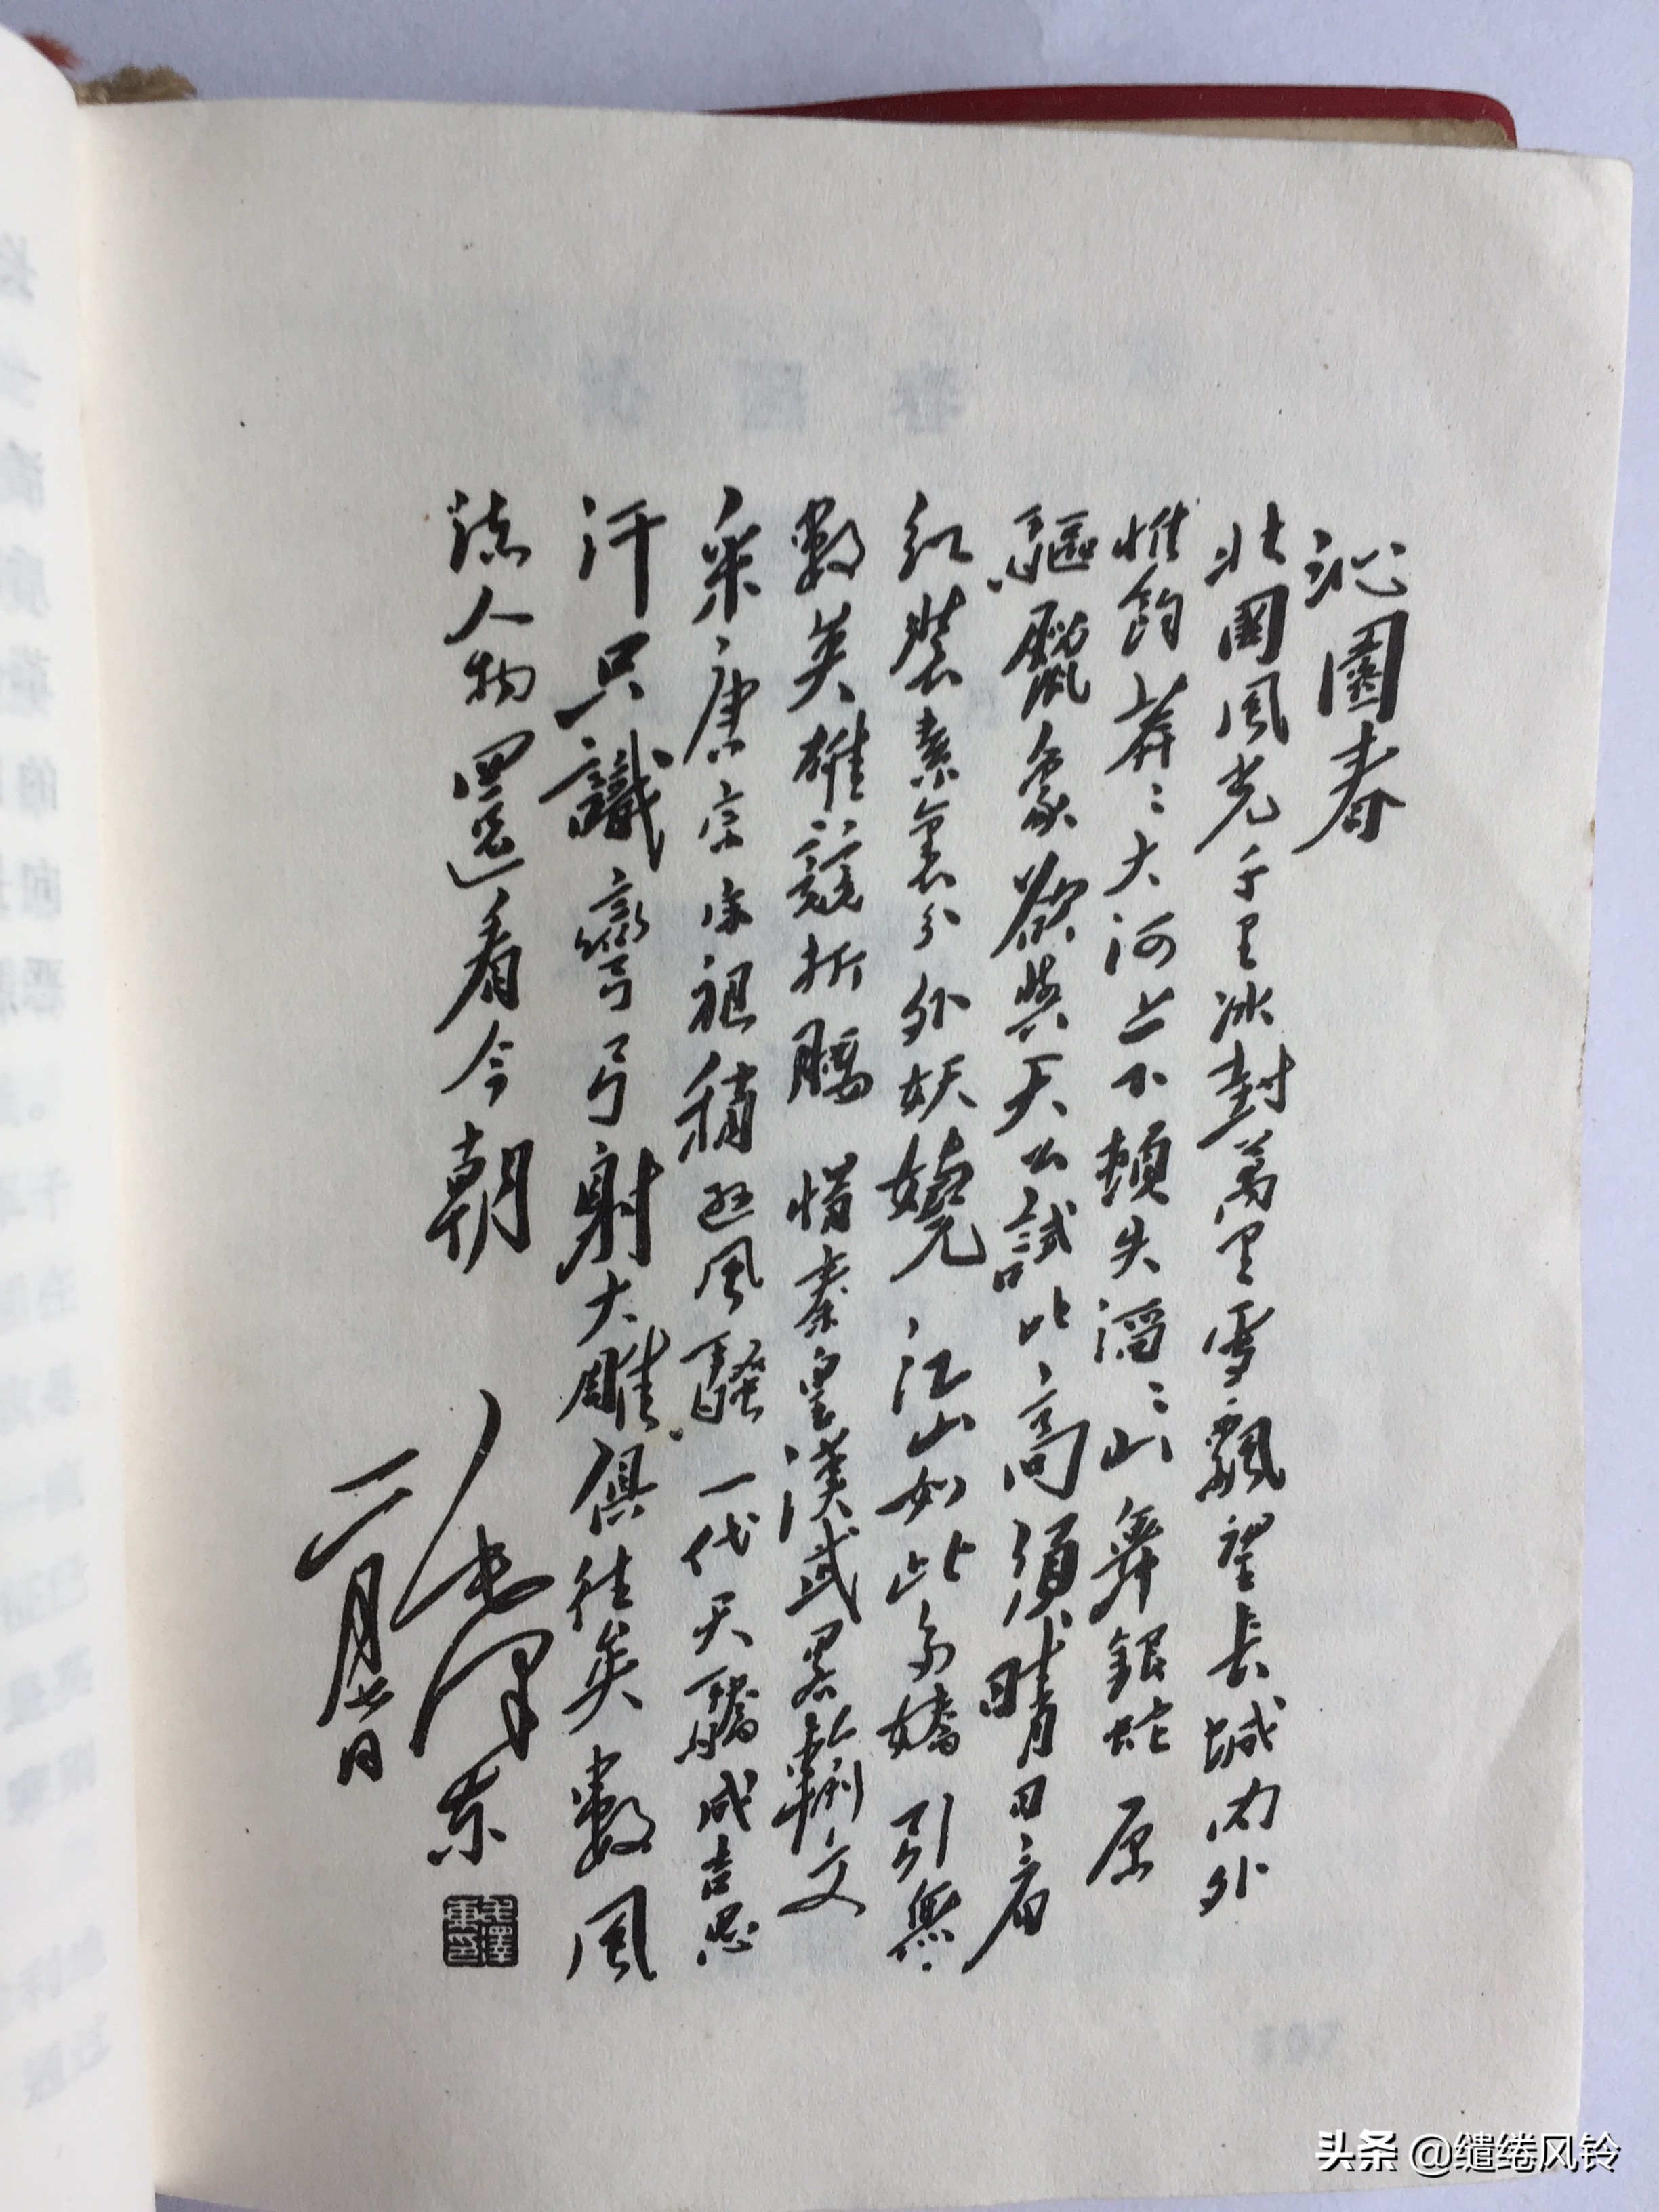 沁園春
北國風光千里冰封萬里雪飄望長城内外
惟餘莽〻大河上下頓失滔〻山舞銀蛇原
驅臘象欲與天公試比高須晴日看
紅裝素裹分外妖嬈 江山如此多嬌引無
數英雄競折腰 惜秦皇漢武畧輸文
采唐宗宋祖稍遜風騷一代天驕成吉思
汗只識彎弓射大雕俱往矣數風
流人物還看今朝
毛澤東
毛澤東印
头条 @缱绻风铃